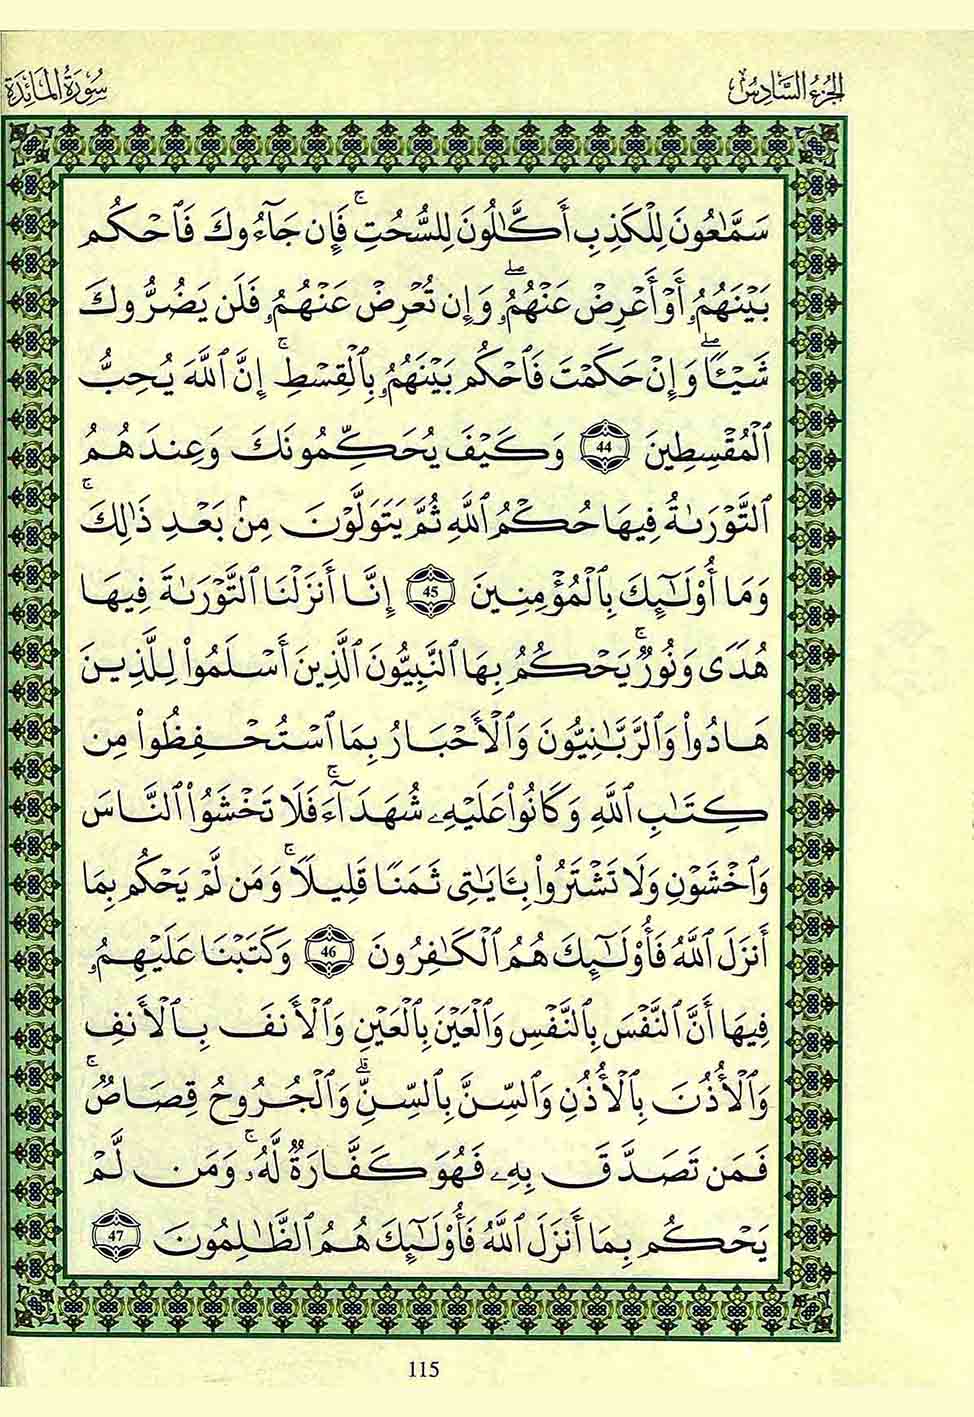 الجزء السادس
سورة المائدة
سَمَّٰعُونَ لِلْكَذِبِ أَكَّٰلُونَ لِلسُّحُتِۚ فَإِن جَآءُوكَ فَٱحْكُم
بَيْنَهُمُۥٓ أَوْ أَعْرِضْ عَنْهُمُۥۖ وَإِن تُعْرِضْ عَنْهُمُۥ فَلَن يَضُرُّوكَ
شَيْـًٔاۖ وَإِنْ حَكَمْتَ فَٱحْكُم بَيْنَهُمُۥ بِٱلْقِسْطِۚ إِنَّ ٱللَّهَ يُحِبُّ
ٱلْمُقْسِطِينَ 44 وَكَيْفَ يُحَكِّمُونَكَ وَعِندَهُمُ
ٱلتَّوْرَىٰةُ فِيهَا حُكْمُ ٱللَّهِ ثُمَّ يَتَوَلَّوْنَ مِنۢ بَعْدِ ذَٰلِكَۚ
وَمَا أُوْلَٰٓئِكَ بِٱلْمُؤْمِنِينَ 45 إِنَّا أَنزَلْنَا ٱلتَّوْرَىٰةَ فِيهَا
هُدًى وَنُورٌۚ يَحْكُمُ بِهَا ٱلنَّبِيُّونَ ٱلَّذِينَ أَسْلَمُواْ لِلَّذِينَ
هَادُواْ وَٱلرَّبَّٰنِيُّونَ وَٱلْأَحْبَارُ بِمَا ٱسْتُحْفِظُواْ مِن
كِتَٰبِ ٱللَّهِ وَكَانُواْ عَلَيْهِۦ شُهَدَآءَۚ فَلَا تَخْشَوُاْ ٱلنَّاسَ
وَٱخْشَوْنِ وَلَا تَشْتَرُواْ بِـَٔايَٰتِى ثَمَنًا قَلِيلًاۚ وَمَن لَّمْ يَحْكُم بِمَا
أَنزَلَ ٱللَّهُ فَأُوْلَٰٓئِكَ هُمُ ٱلْكَٰفِرُونَ 46 وَكَتَبْنَا عَلَيْهِمُۥ
فِيهَا أَنَّ ٱلنَّفْسَ بِٱلنَّفْسِ وَٱلْعَيْنَ بِٱلْعَيْنِ وَٱلْأَنفَ بِٱلْأَنفِ
وَٱلْأُذُنَ بِٱلْأُذُنِ وَٱلسِّنَّ بِٱلسِّنِّۗ وَٱلْجُرُوحُ قِصَاصٌۚ
فَمَن تَصَدَّقَ بِهِۦ فَهُوَ كَفَّارَةٌ لَّهُۥۚ وَمَن لَّمْ
يَحْكُم بِمَا أَنزَلَ ٱللَّهُ فَأُوْلَٰٓئِكَ هُمُ ٱلظَّٰلِمُونَ 47
115